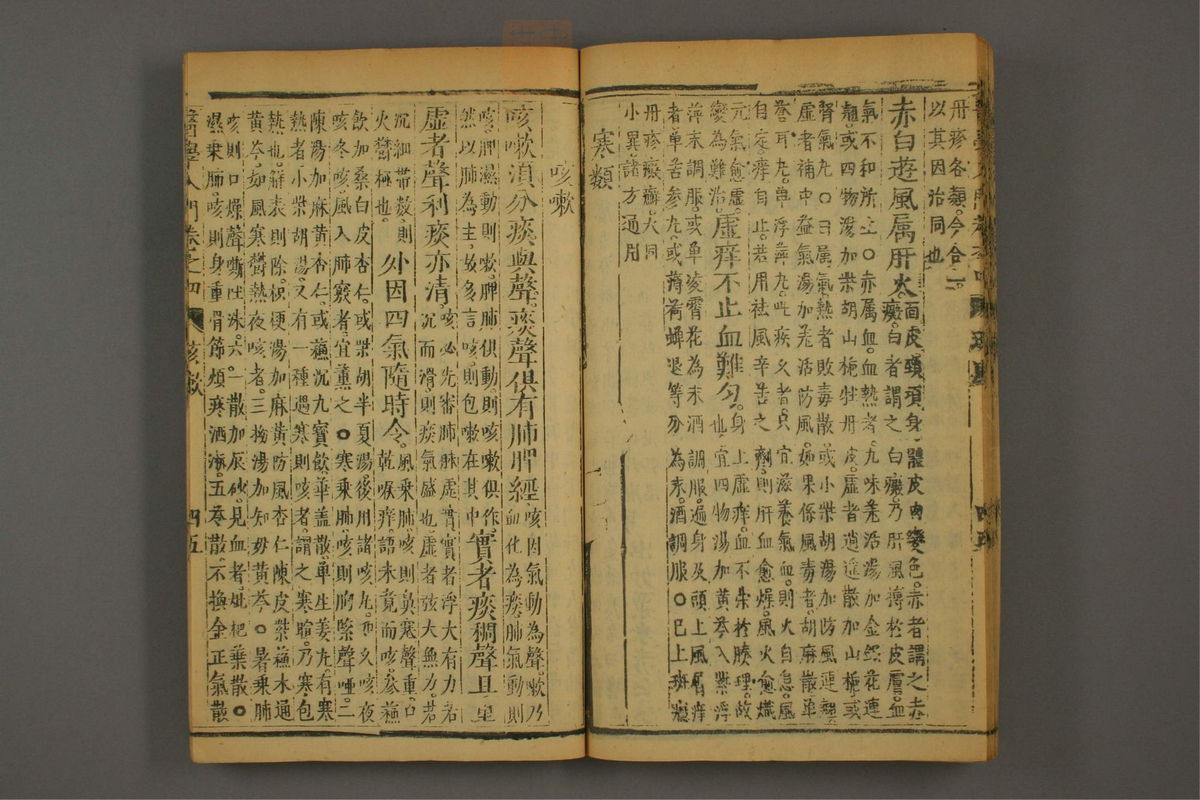 丹疹各類今合一
以其因治同也
赤白遊風属肝火面皮頭項身體皮肉變色赤者謂之赤
癜白者謂之白癜乃肝風搏於皮膚血
氣不和所生○赤属血血熱者九味羌活湯加金銀花連
翹或四物湯加柴胡山梔牡丹皮虛者逍遙散加山梔或
腎氣丸○白属氣熱者敗毒散或小柴胡湯加防風連翹
虛者補中益氣湯加羌活防風如果係風毒者胡麻散單
苍耳丸單浮萍丸此疾久者只宜滋養氣血則火自息風
自定痒自止若用祛風辛苦之劑則肝血愈燥風火愈熾
元氣愈虛
變為難治虛痒不止血難勻身上虛痒血不榮於腠理故
也宜四物湯加黃芩入紫浮
萍末調服或單凌霄花為末酒調服遍身及頭上風屑痒
者單苦參丸或薄荷蟬退等分為末酒調服○已上斑癮
丹疹癜癬大同
小異諸方通用
寒類
咳嗽
咳嗽須分痰與聲痰聲俱有肺脾經咳因氣動為聲嗽乃
血化為痰肺氣動則
咳脾濕動則嗽脾肺俱動則咳嗽俱作
然以肺為主故多言咳則包嗽在其中實者痰稠聲且重
虛者聲利痰亦清咳必先審肺脉虛實實者浮大有力若
沉而滑則痰氣盛也虛者弦大無力若
沉細帶數則
火鬱極也外因四氣隨時令風乘肺咳則鼻塞聲重口
乾喉痒語未竟而咳參蘇
飲加桑白皮杏仁或柴胡半夏湯後用諸咳丸如久咳夜
咳冬咳風入肺竅者宜薰之○寒乘肺咳則胸緊聲啞二
陳湯加麻黃杏仁或蘇沉九寶飲華盖散單生姜丸有寒
熱者小柴胡湯又有一種遇寒則咳者謂之寒暄乃寒包
熱也解表則除枳梗湯加麻黃防風杏仁陳皮紫蘇木通
黃芩如風寒鬱熱夜咳者三拗湯加知毋黃芩○暑乘肺
咳則口燥聲嘶吐沫六一散加辰砂見血者枇杷葉散○
濕乘肺咳則身重骨節煩疼洒淅五苓散不換金正氣散
醫學入門
卷之四
咳嗽
四五